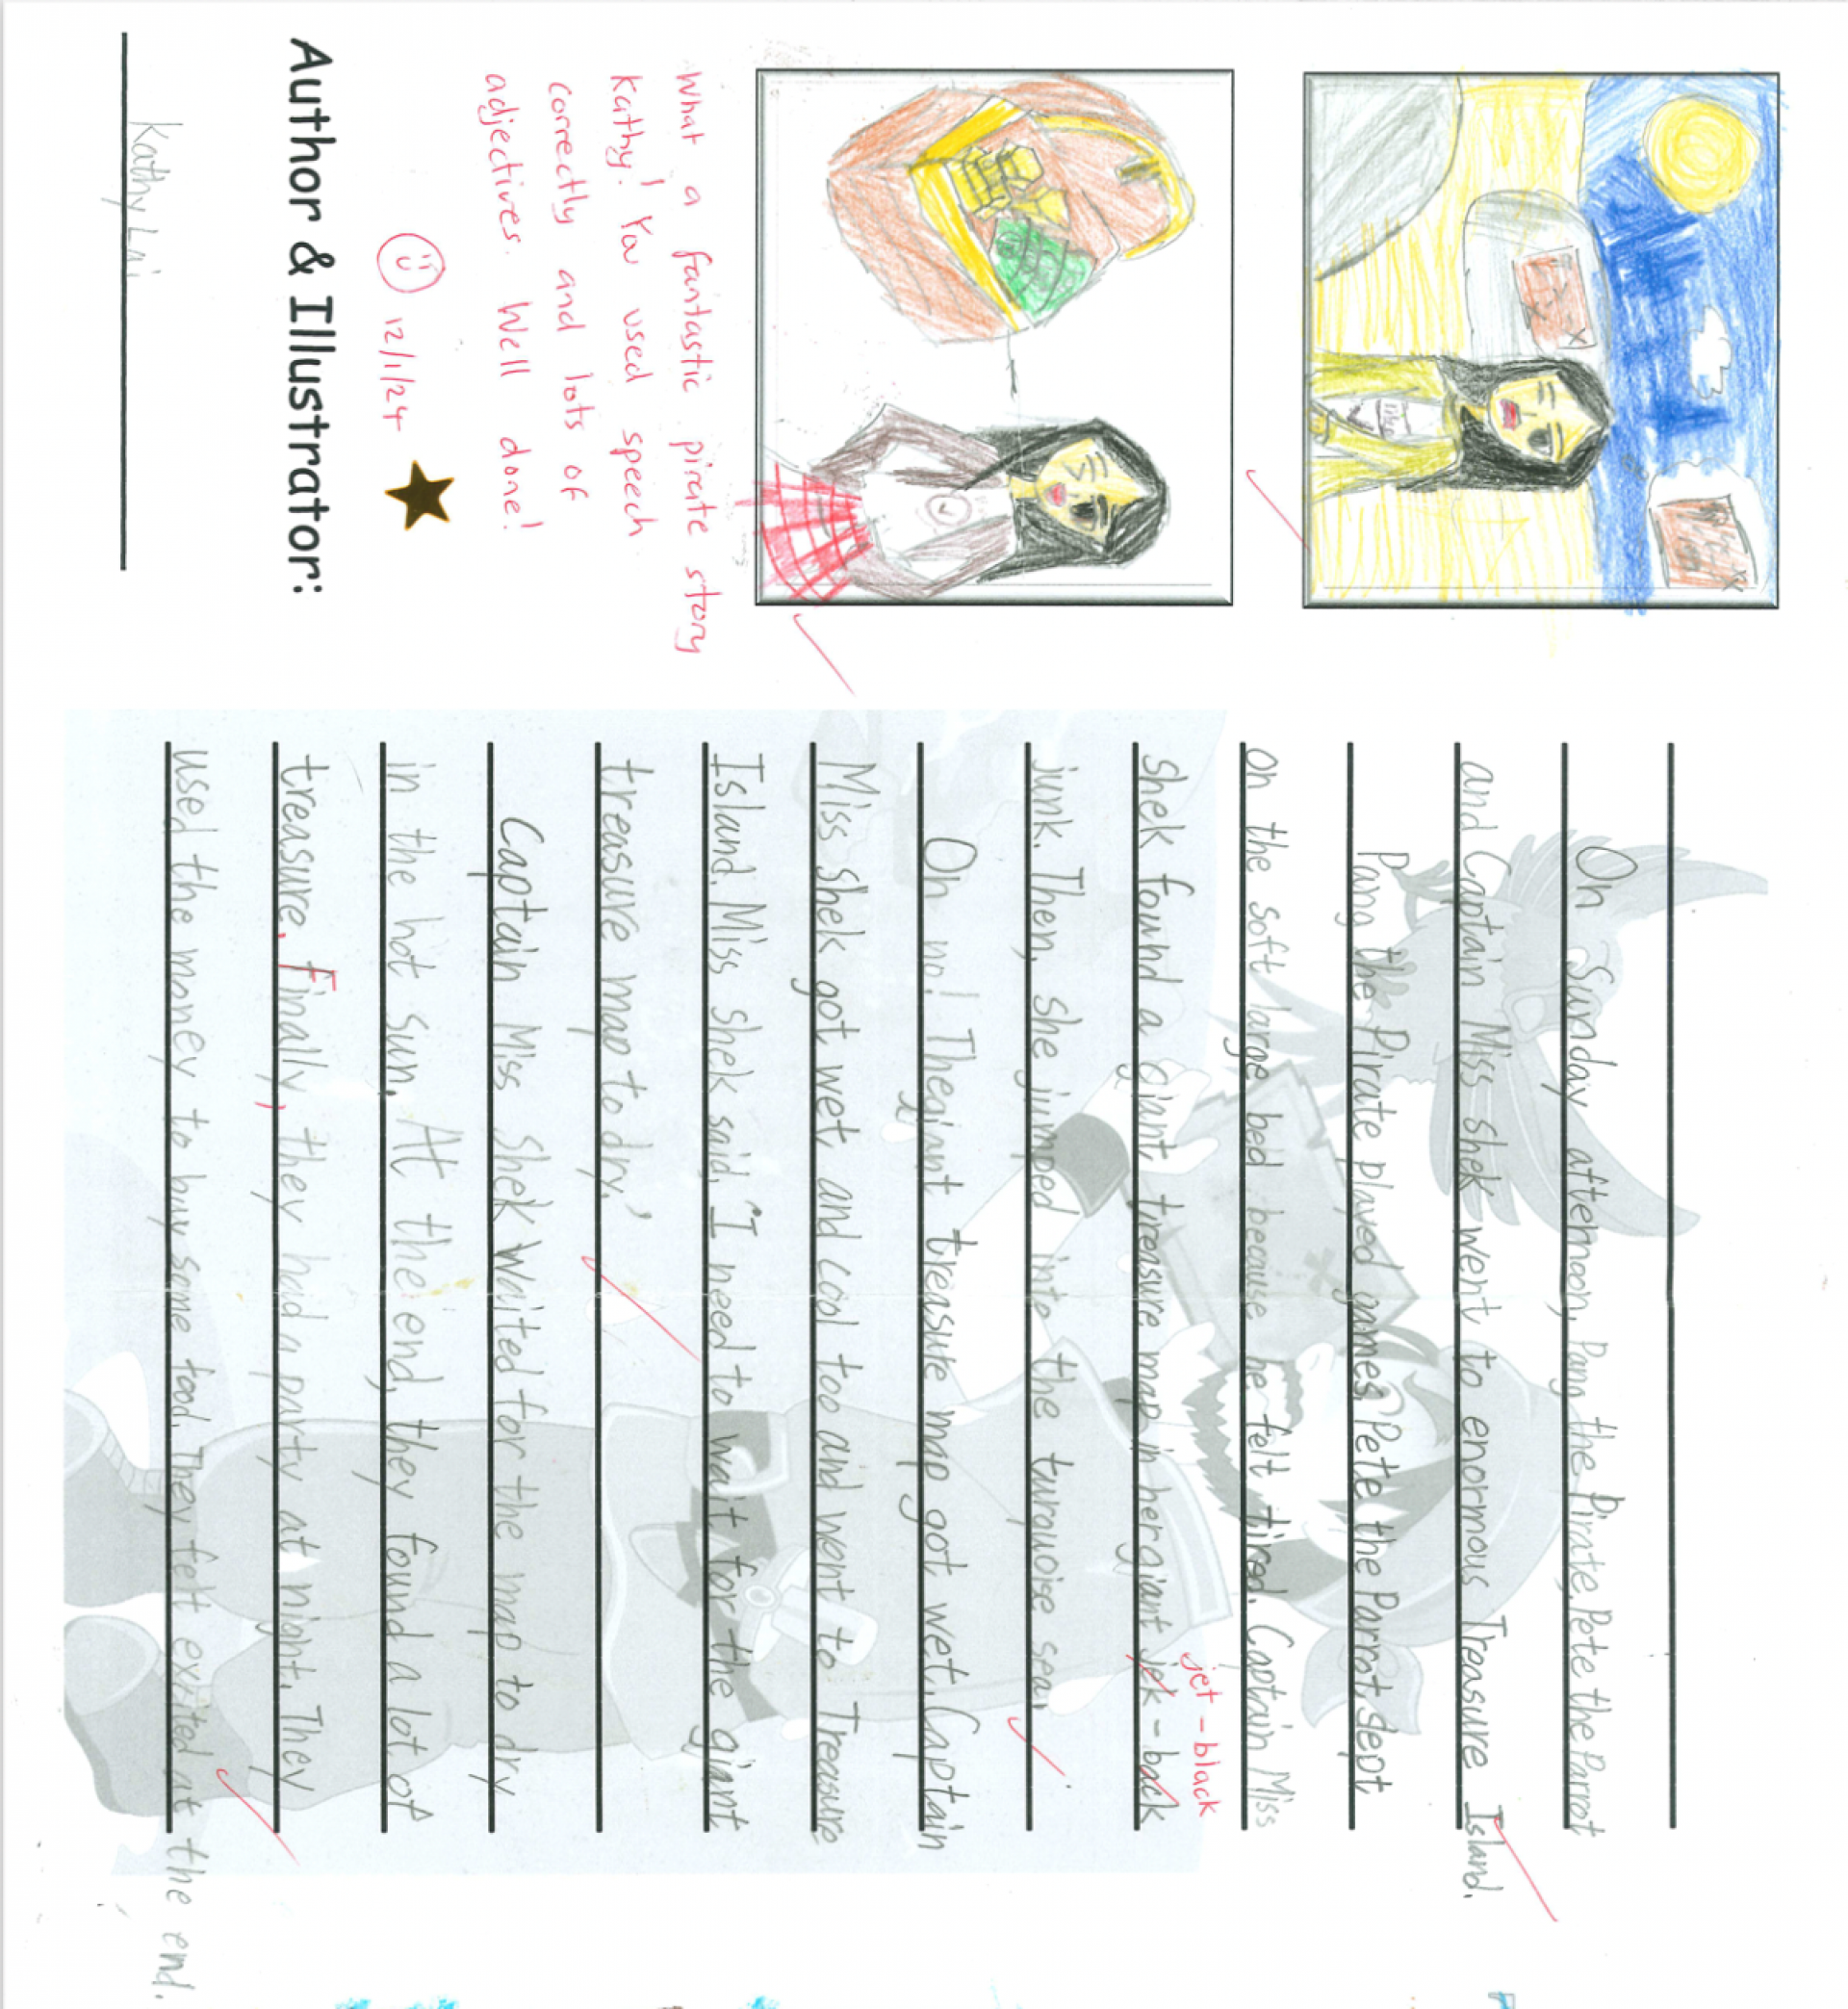 On Sunday afternoon, Pang the Pirate, Pete the Parrot
and Captain Miss Shek went to enormous Treasure Island.
Pang the Pirate played games, Pete the Parrot slept
on the soft large bed because he felt tired. Captain Miss
jet-black
Shek found a giant treasure map in her giant jek-back
junk. Then, she jumped into the turquoise sea.
Oh no! The giant treasure map got wet. Captain
Miss Shek got wet, and cool too and went to Treasure
Island. Miss Shek said, "I need to wait for the giant
treasure map to dry."
Captain Miss Shek waited for the map to dry
in the hot sun. At the end, they found a lot of
treasure. Finally, they had a party at night. They
used the money to buy some food. They felt exited at the end.
What a fantastic pirate story
Kathy! You used speech
correctly and lots of
adjectives. Well done!
12/1/24
Author & Illustrator:
Kathy Lai